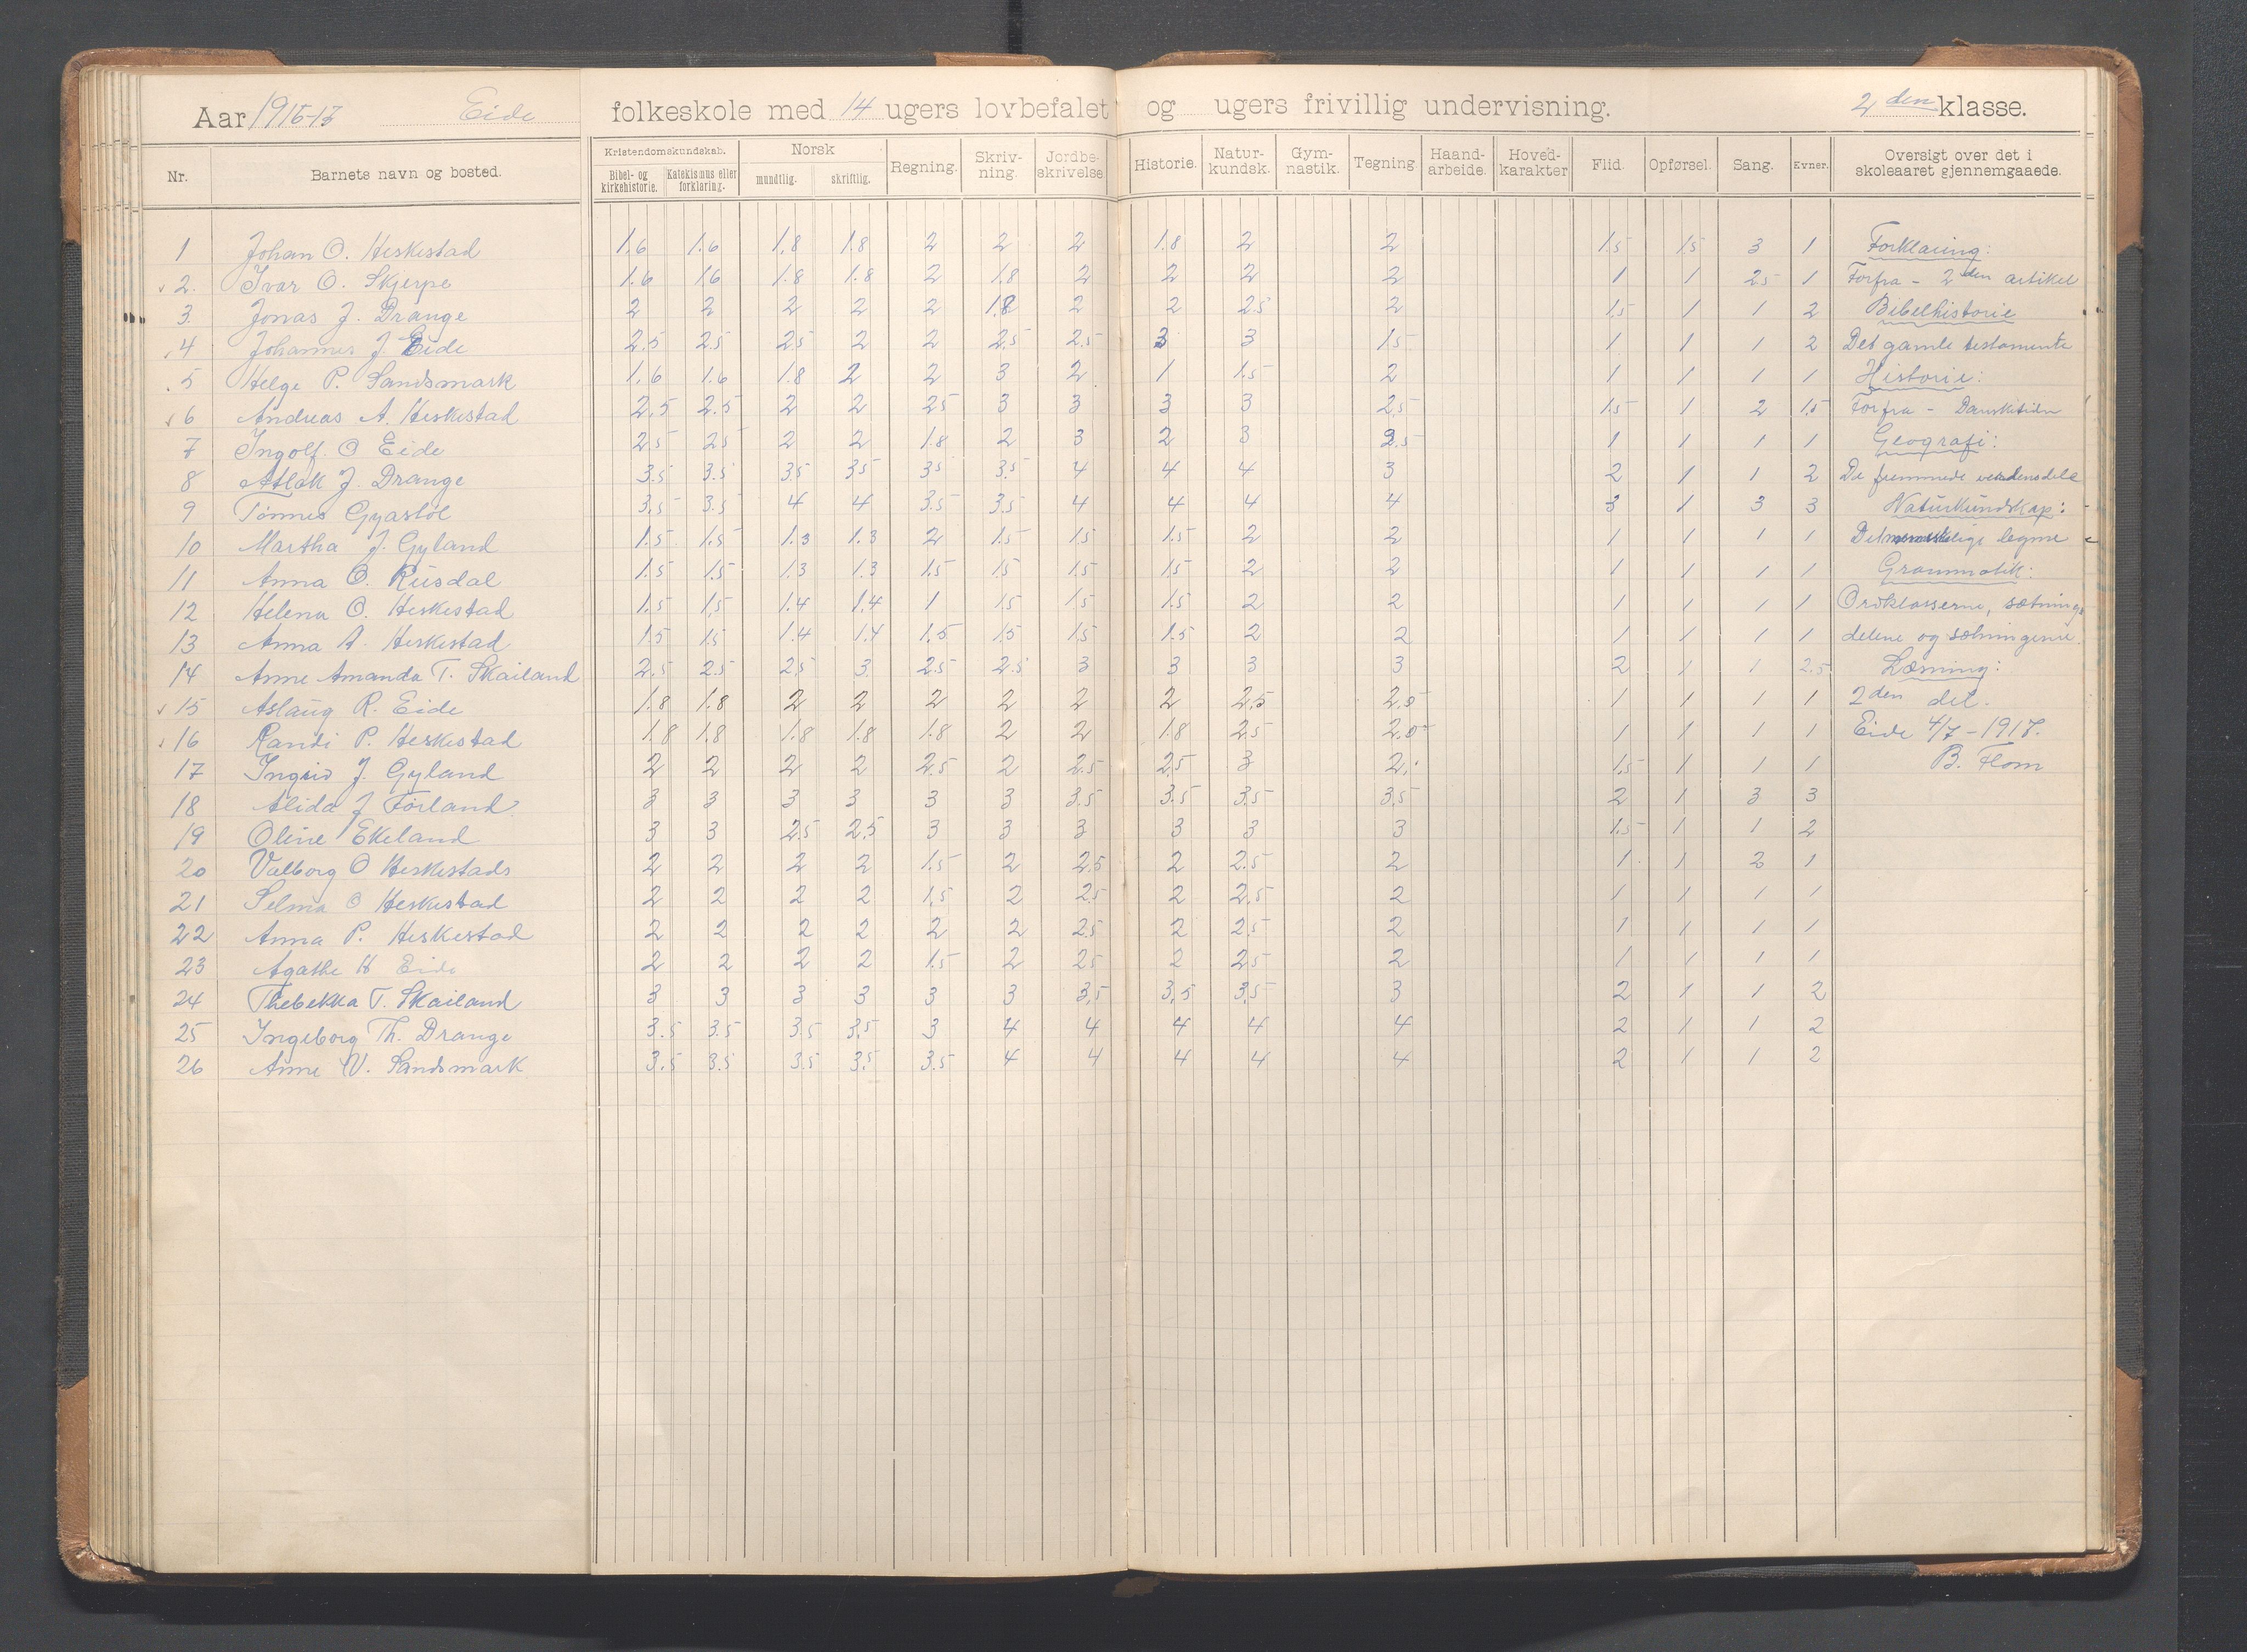 Aar 1916-17 Eide folkeskole med 14 ugers lovbefalet og ugers frivillig undervisning. 2den klasse.
Nr. Barnets navn og bosted. Kristendomskundskab. Bibel- og kirkehistorie. Katekismus eller forklaring. Norsk mundtlig. skriftlig. Regning. Skriv-ning. Jordbe-skrivelse Historie. Natur-kundsk. Gym-nastik. Tegning. Haand-arbeide. Hoved-karakter Flid. Opførsel. Sang. Evner. Oversigt over det i skoleaaret gjennemgaaede.
1 Johan O. Heskestad 1.6 1.6 1.8 1.8 2 2 2 1.8 2 2 1.5 1.5 3 1 Forklaring:
2. Ivar O. Skjerpe 1.6 1.6 1.8 1.8 2 1.8 2 2 2 2 1 1 2.5 1 Forfra - 2den artikel
3. Jonas J. Drange 2 2 2 2 2 1.8 2 2 2.5 2 1.5 1 1 2 Bibelhistorie
4 Johannes J. Eide 2.5 2.5 2.5 2 2 2.5 2.5 3 3 1.5 1 1 1 2 Det gamle testamente
5 Helge P. Sandsmark 1.6 1.6 1.8 2 2 3 2 1 1.5 2 1 1 1 1 Historie:
6 Andreas A. Heskestad 2.5 2.5 2 2 2.5 3 3 3 3 2.5 1.5 1 2 1.5 Forfra - Dansketiden
7 Ingolf. O Eide 2.5 2.5 2 2 1.8 2 3 2 3 2.5 1 1 1 1 Geografi:
8 Atlak J. Drange 3.5 3.5 3.5 3.5 3.5 3.5 4 4 4 3 2 1 1 2 De fremmede verdensdele
9 Tønnes Gyastøl 3.5 3.5 4 4 3.5 3.5 4 4 4 4 3 1 3 3 Naturkundskap:
10 Martha J. Gyland 1.5 1.5 1.3 1.3 2 1.5 1.5 1.5 2 2 1 1 1 1 Det menneskelige legme
11 Anna O. Rusdal 1.5 1.5 1.3 1.3 1.5 1.5 1.5 1.5 2 2 1 1 1 1 Grammatik:
12 Helena O. Heskestad 1.5 1.5 1.4 1.4 1 1.5 1.5 1.5 2 2 1 1 1 1 Ordklasserne, sætnings
13 Anna A. Heskestad 1.5 1.5 1.4 1.4 1.5 1.5 1.5 1.5 2 2 1 1 1 1 delene og sætningerne.
14 Anne Amanda T. Skailand 2.5 2.5 2.5 3 2.5 2.5 3 3 3 3 2 1 1 2.5 Læsning:
15 Aslaug R. Eide 1.8 1.8 2 2 2 2 2 2 2.5 2.5 1 1 1 1 2den del.
16 Randi P. Heskestad 1.8 1.8 1.8 1.8 1.8 2 2 1.8 2.5 2.0 1 1 1 1 Eide 4/7 - 1917.
17 Ingrid J. Gyland 2 2 2 2 2.5 2 2.5 2.5 3 2. 1.5 1 1 1 B. Flom
18 Alida J Førland 3 3 3 3 3 3 3.5 3.5 3.5 3.5 2 1 3 3
19 Oline Ekeland 3 3 2.5 2.5 3 3 3 3 3 3 1.5 1 1 2
20 Valborg O Heskestads 2 2 2 2 1.5 2 2.5 2 2.5 2 1 1 2 1
21 Selma O Heskestad 2 2 2 2 1.5 2 2.5 2 2.5 2 1 1 1 1
22 Anna P. Heskestad 2 2 2 2 2 2 2.5 2 2.5 2 1 1 1 1
23 Agathe H Eide 2 2 2 2 1.5 2 2.5 2 2.5 2 1 1 1 1
24 Thebekka T. Skailand 3 3 3 3 3 3 3.5 3.5 3.5 3 2 1 1 2
25 Ingeborg Th. Drange 3.5 3.5 3.5 3.5 3 4 4 4 4 4 2 1 1 2
26 Anne V. Sandsmark 3.5 3.5 3.5 3.5 3.5 4 4 4 4 4 2 1 1 2